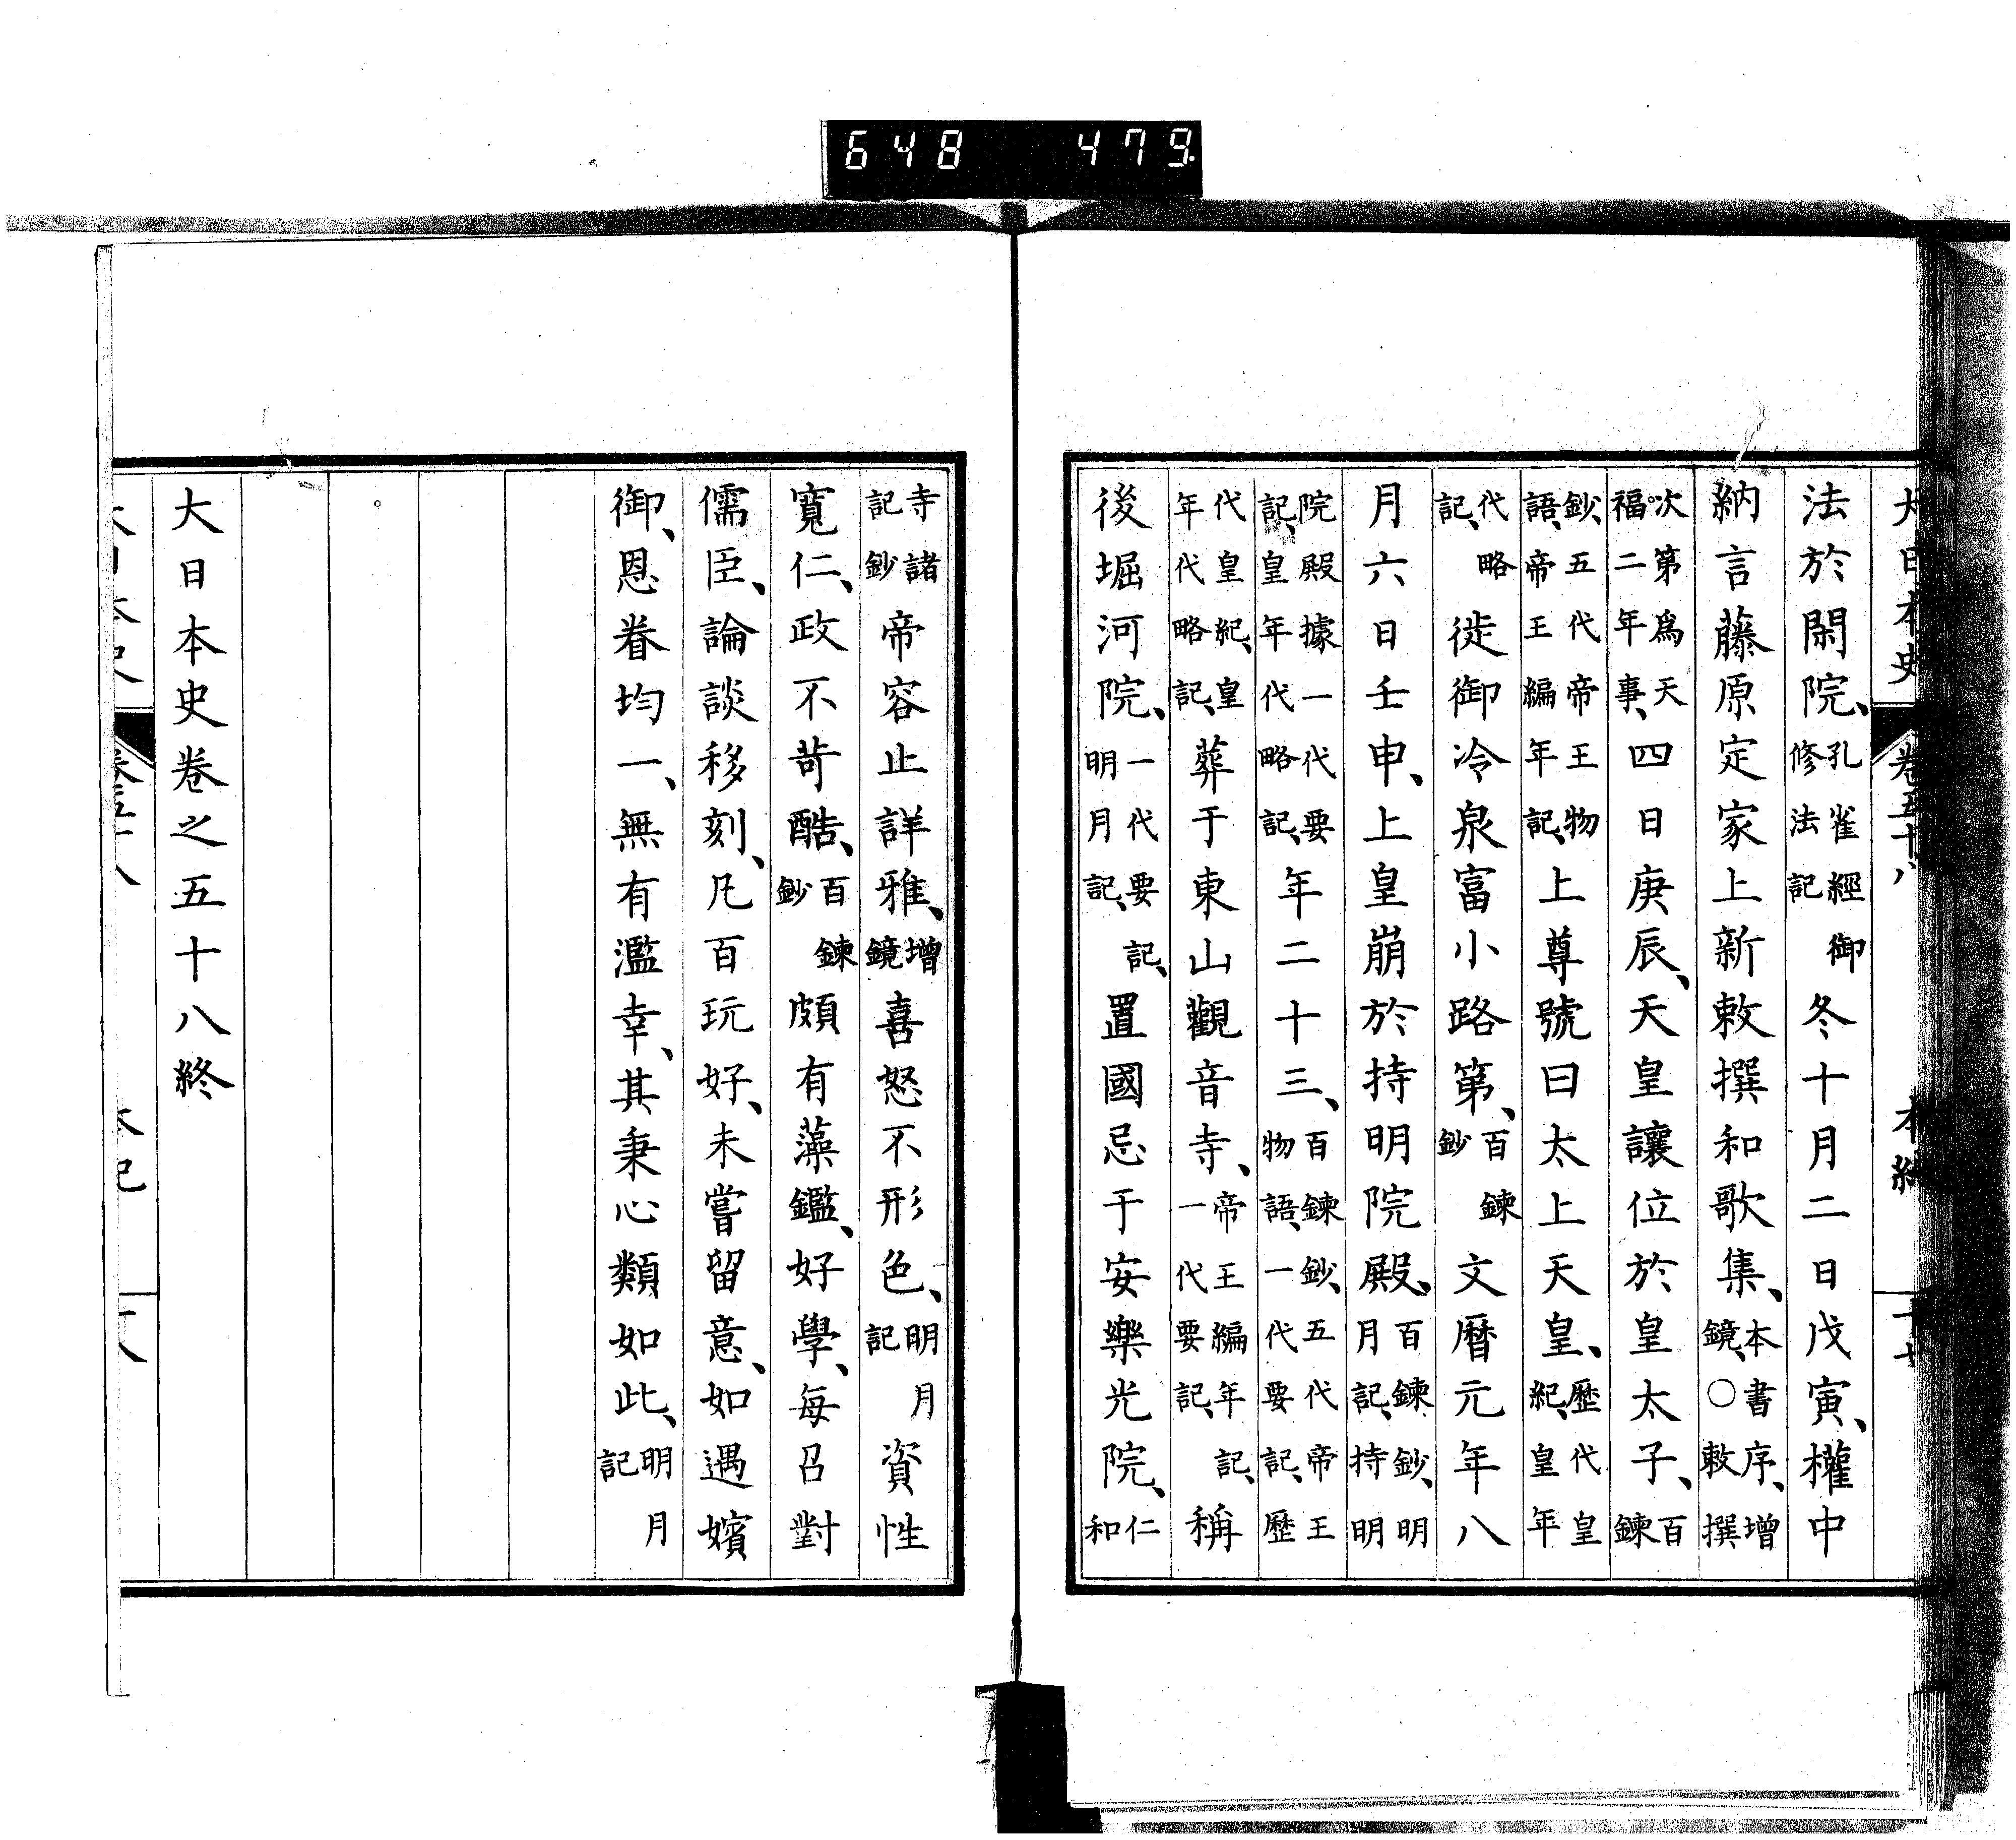 大日本史 卷五十八 本紀
法於閑院、孔雀經御修法記冬十月二日戊寅、權中
納言藤原定家上新敕撰和歌集、本書序、增鏡、○敕撰
次第爲天福二年事、四日庚辰、天皇讓位於皇太子、百鍊
鈔、五代帝王物語、帝王編年記、上尊號曰太上天皇、歷代皇紀、皇年
代略記、徙御冷泉富小路第、百鍊鈔文曆元年八
月六日壬申、上皇崩於持明院殿、百鍊鈔、明月記、持明
院殿據一代要記、皇年代略記、年二十三、百鍊鈔、五代帝王物語、一代要記、歷
代皇紀、皇年代略記、葬于東山觀音寺、帝王編年記、一代要記、稱
後堀河院、一代要記、明月記、置國忌于安樂光院、仁和
寺諸記鈔帝容止詳雅、增鏡喜怒不形色、明月記資性
寬仁、政不苛酷、百鍊鈔頗有藻鑑、好學、每召對
儒臣、論談移刻、凡百玩好、未嘗留意、如遇嬪
御、恩眷均一、無有濫幸、其秉心類如此、明月記
大日本史卷之五十八終
648 479